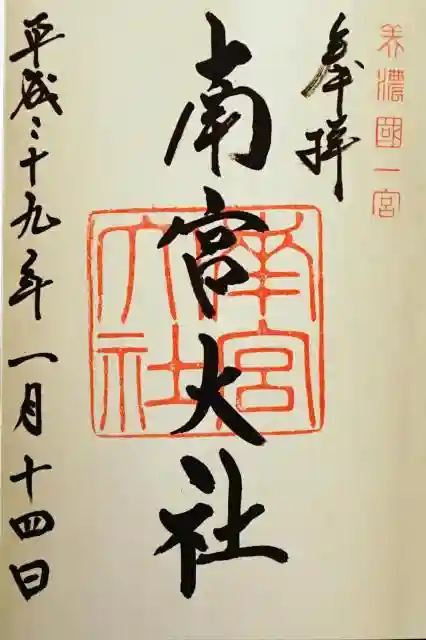 美濃國一宮
奉拝
南宮大社
南宮大社
平成二十九年一月十四日